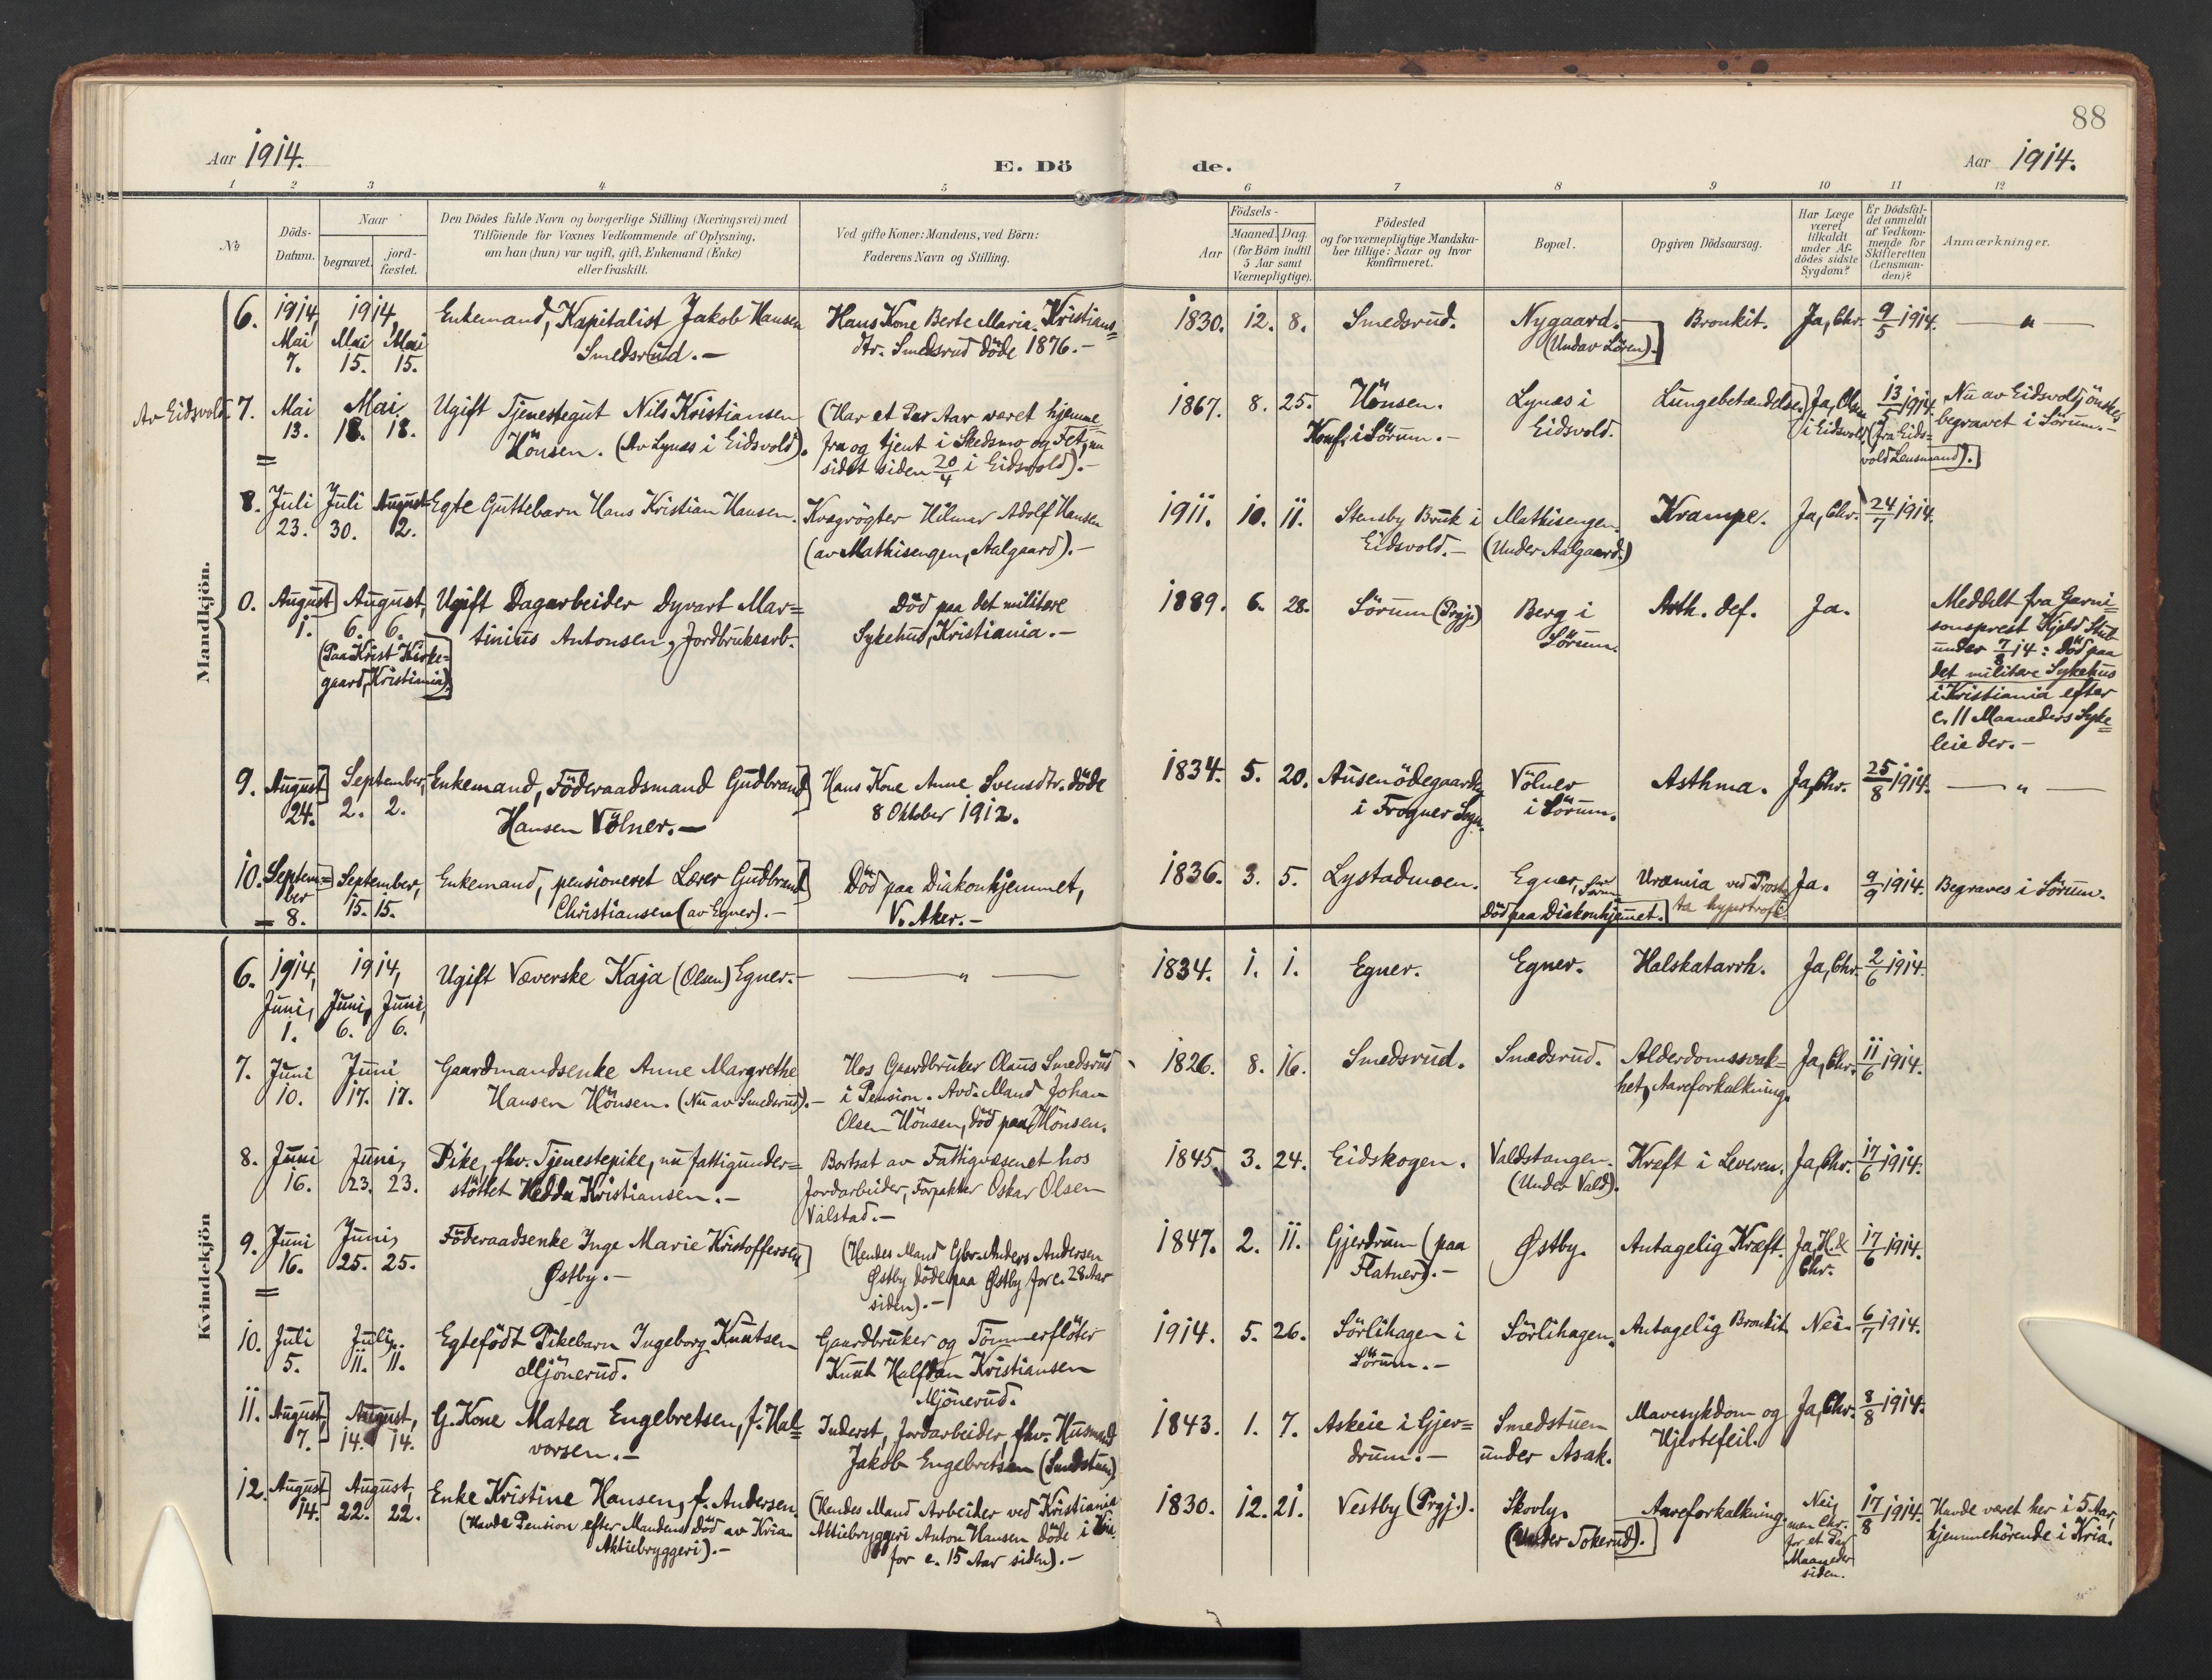 88
Aar 1914.
E. Döde.
Aar 1914.
1 2 3 4 5 6 7 8 9 10 11 12
No
Döds-Datum.
Naar
begravet.
jord-fæstet.
Den Dödes fulde Navn og borgerlige Stilling (Næringsvei) med
Tilföiende for Voxnes Vedkommende af Oplysning,
om han (hun) var ugift, gift, Enkemand (Enke)
eller fraskilt.
Ved gifte Koner: Mandens, ved Börn:
Faderens Navn og Stilling.
Födsels-
Aar
Maaned. Dag.
(for Börn indtil
5 Aar samt
Værnepligtige).
Födested
og for værnepligtige Mandska-
ber tillige: Naar og hvor
konfirmeret.
Bopæl.
Opgiven Dödsaarsag.
Har Læge
været
tilkaldt
under Af-
dödes sidste
Sygdom?
Er Dödsfal-
det anmeldt
af Vedkom-
mende for
Skifteretten
(Lensman-
den)?
Anmærkninger.
Mandkjön.
6. 1914, Mai 7.
1914, Mai 15. Mai 15.
Enkemand, Kapitalist Jakob Hansen
Smedsrud.—
Hans Kone Berte Marie Kristians=
dtr. Smedsrud döde 1876.—
1830. 12. 8.
Smedsrud.
Nygaard.
(Under Lören).
Bronkit.
Ja, Chr.
9/5 1914.
— " —
Av Eidsvold. 7. Mai 13.
Mai 18. 18.
Ugift Tjenestegut Nils Kristiansen
Hönsen. (Av Lynæs i Eidsvold).
(Har et Par Aar været hjemme=
fra og tjent i Skedsmo og Fet, nu
sidst siden 20/4 i Eidsvold).—
1867. 8. 25.
Hönsen.
Konf. i Sörum.—
Lynæs i
Eidsvold.
Lungebetændelse.
Ja, Olsen
i Eidsvold
13/5 1914.
(fra Eids=
vold Lensmand).
Nu av Eidsvold, önskes
begravet i Sörum.—
8. Juli 23.
Juli 30. August 2.
Egte Guttebarn Hans Kristian Hansen.
Kvægrögter Hilmar Adolf Hansen
(av Mathisengen, Aalgaard).—
1911. 10. 11.
Stensby Bruk i
Eidsvold.—
Mathisengen.
(Under Aalgaard.)
Krampe.
Ja, Chr.
24/7 1914.
0. August 1.
August, 6. 6.
(Paa Krist Kirke=
gaard, Kristiania).
Ugift Dagarbeider Dyvart Mar=
tinius Antonsen, Jordbruksarb.
Död paa det militære
Sykehus, Kristiania.—
1889. 6. 28.
Sörum (Prgj.)
Berg i
Sörum.
Arth. def.
Ja.
Meddelt fra Garni=
sonsprest Kjeld Stub
under 7/8 14: Död paa
det militære Sykehus
i Kristiania efter
c. 11 Maaneders Syke=
leie der.—
9. August 24.
September, 2. 2.
Enkemand, Föderaadsmand Gudbrand
Hansen Völner.—
Hans Kone Anne Svensdtr. döde
8 Oktober 1912.
1834. 5. 20.
Ausenödegaarden
i Frogner Sogn.
Völner
i Sörum.
Asthma.
Ja, Chr.
25/8 1914.
— " —
10. Septem=
ber 8.
September, 15. 15.
Enkemand, pensioneret Lærer Gudbrand
Christiansen (av Egner).—
Död paa Diakonhjemmet,
V. Aker.—
1836. 3. 5.
Lystadmoen.
Egner, Sörum
Död paa Diakonhjemmet.
Uræmia ved Prosta=
ta hypertrofi.
Ja.
9/9 1914.
Begraves i Sörum.
Kvindekjön
6. 1914, Juni, 1.
1914, Juni, 6. Juni, 6.
Ugift Væverske Kaja (Olsen) Egner.—
— " —
1834. 1. 1.
Egner.
Egner.
Halskatarrh.
Ja, Chr.
2/6 1914.
7. Juni 10.
Juni 17. 17.
Gaardmandsenke Anne Margrethe
Hansen Hönsen. (Nu av Smedsrud).—
Hos Gaardbruker Olaus Smedsrud
i Pension. Avd. Mand Johan
Olsen Hönsen, död paa Hönsen.
1826. 8. 16.
Smedsrud.
Smedsrud.
Alderdomssvak=
het, Aareforkalkning.
Ja, Chr.
11/6 1914.
8. Juni 16.
Juni, 23. 23.
Pike, fhv. Tjenestepike, nu fattigunder=
støttet Hedda Kristiansen.—
Bortsat av Fattigvæsenet hos
Jordarbeider, Forpakter Oskar Olsen
Valstad.—
1845. 3. 24.
Eidskogen.
Valdstangen.
(Under Vald).
Kræft i Leveren.
Ja, Chr.
17/6 1914.
9. Juni 16.
Juni, 25. 25.
Föderaadsenke Inge Marie Kristoffersen
Østby.—
(Hendes Mand Gbr. Anders Andersen
Østby döde paa Østby for c. 28 Aar
siden).—
1847. 2. 11.
Gjerdrum (paa
Flatner).—
Østby.
Antagelig Kræft.
Ja, H. &
Chr.
17/6 1914.
10. Juli 5.
Juli, 11. 11.
Egtefödt Pikebarn Ingeborg Knutsen
Mjönerud.
Gaardbruker og Tömmerflöter
Knut Halfdan Kristiansen
Mjönerud.
1914. 5. 26.
Sörlihagen i
Sörum.—
Sörlihagen.
Antagelig Bronkit.
Nei.
6/7 1914.
11. August 7.
August, 14. 14.
G. Kone Matea Engebretsen, f. Hal=
vorsen.—
Inderst, Jordarbeider, fhv. Husmand
Jakob Engebretsen (Smedstuen)
1843. 1. 7.
Askeie i Gjer=
drum.—
Smedstuen
under Asak.
Mavesykdom og
Hjertefeil.
Ja, Chr.
8/8 1914.
12. August 14.
August, 22. 22.
Enke Kristine Hansen, f. Andersen.
(Havde Pension efter Mandens Död av Kria.
Aktiebryggeri).—
(Hendes Mand Arbeider ved Kristiania
Aktiebryggeri Anton Hansen döde i Kria.
for c. 15 Aar siden).—
1830. 12. 21.
Vestby (Prgj.).
Skovly.
(Under Tokerud).
Aareforkalkning.
Nei,
men Chr.
for et Par
Maaneder
siden.
17/8 1914.
Havde været her i 5 Aar,
hjemmehörende i Kria.